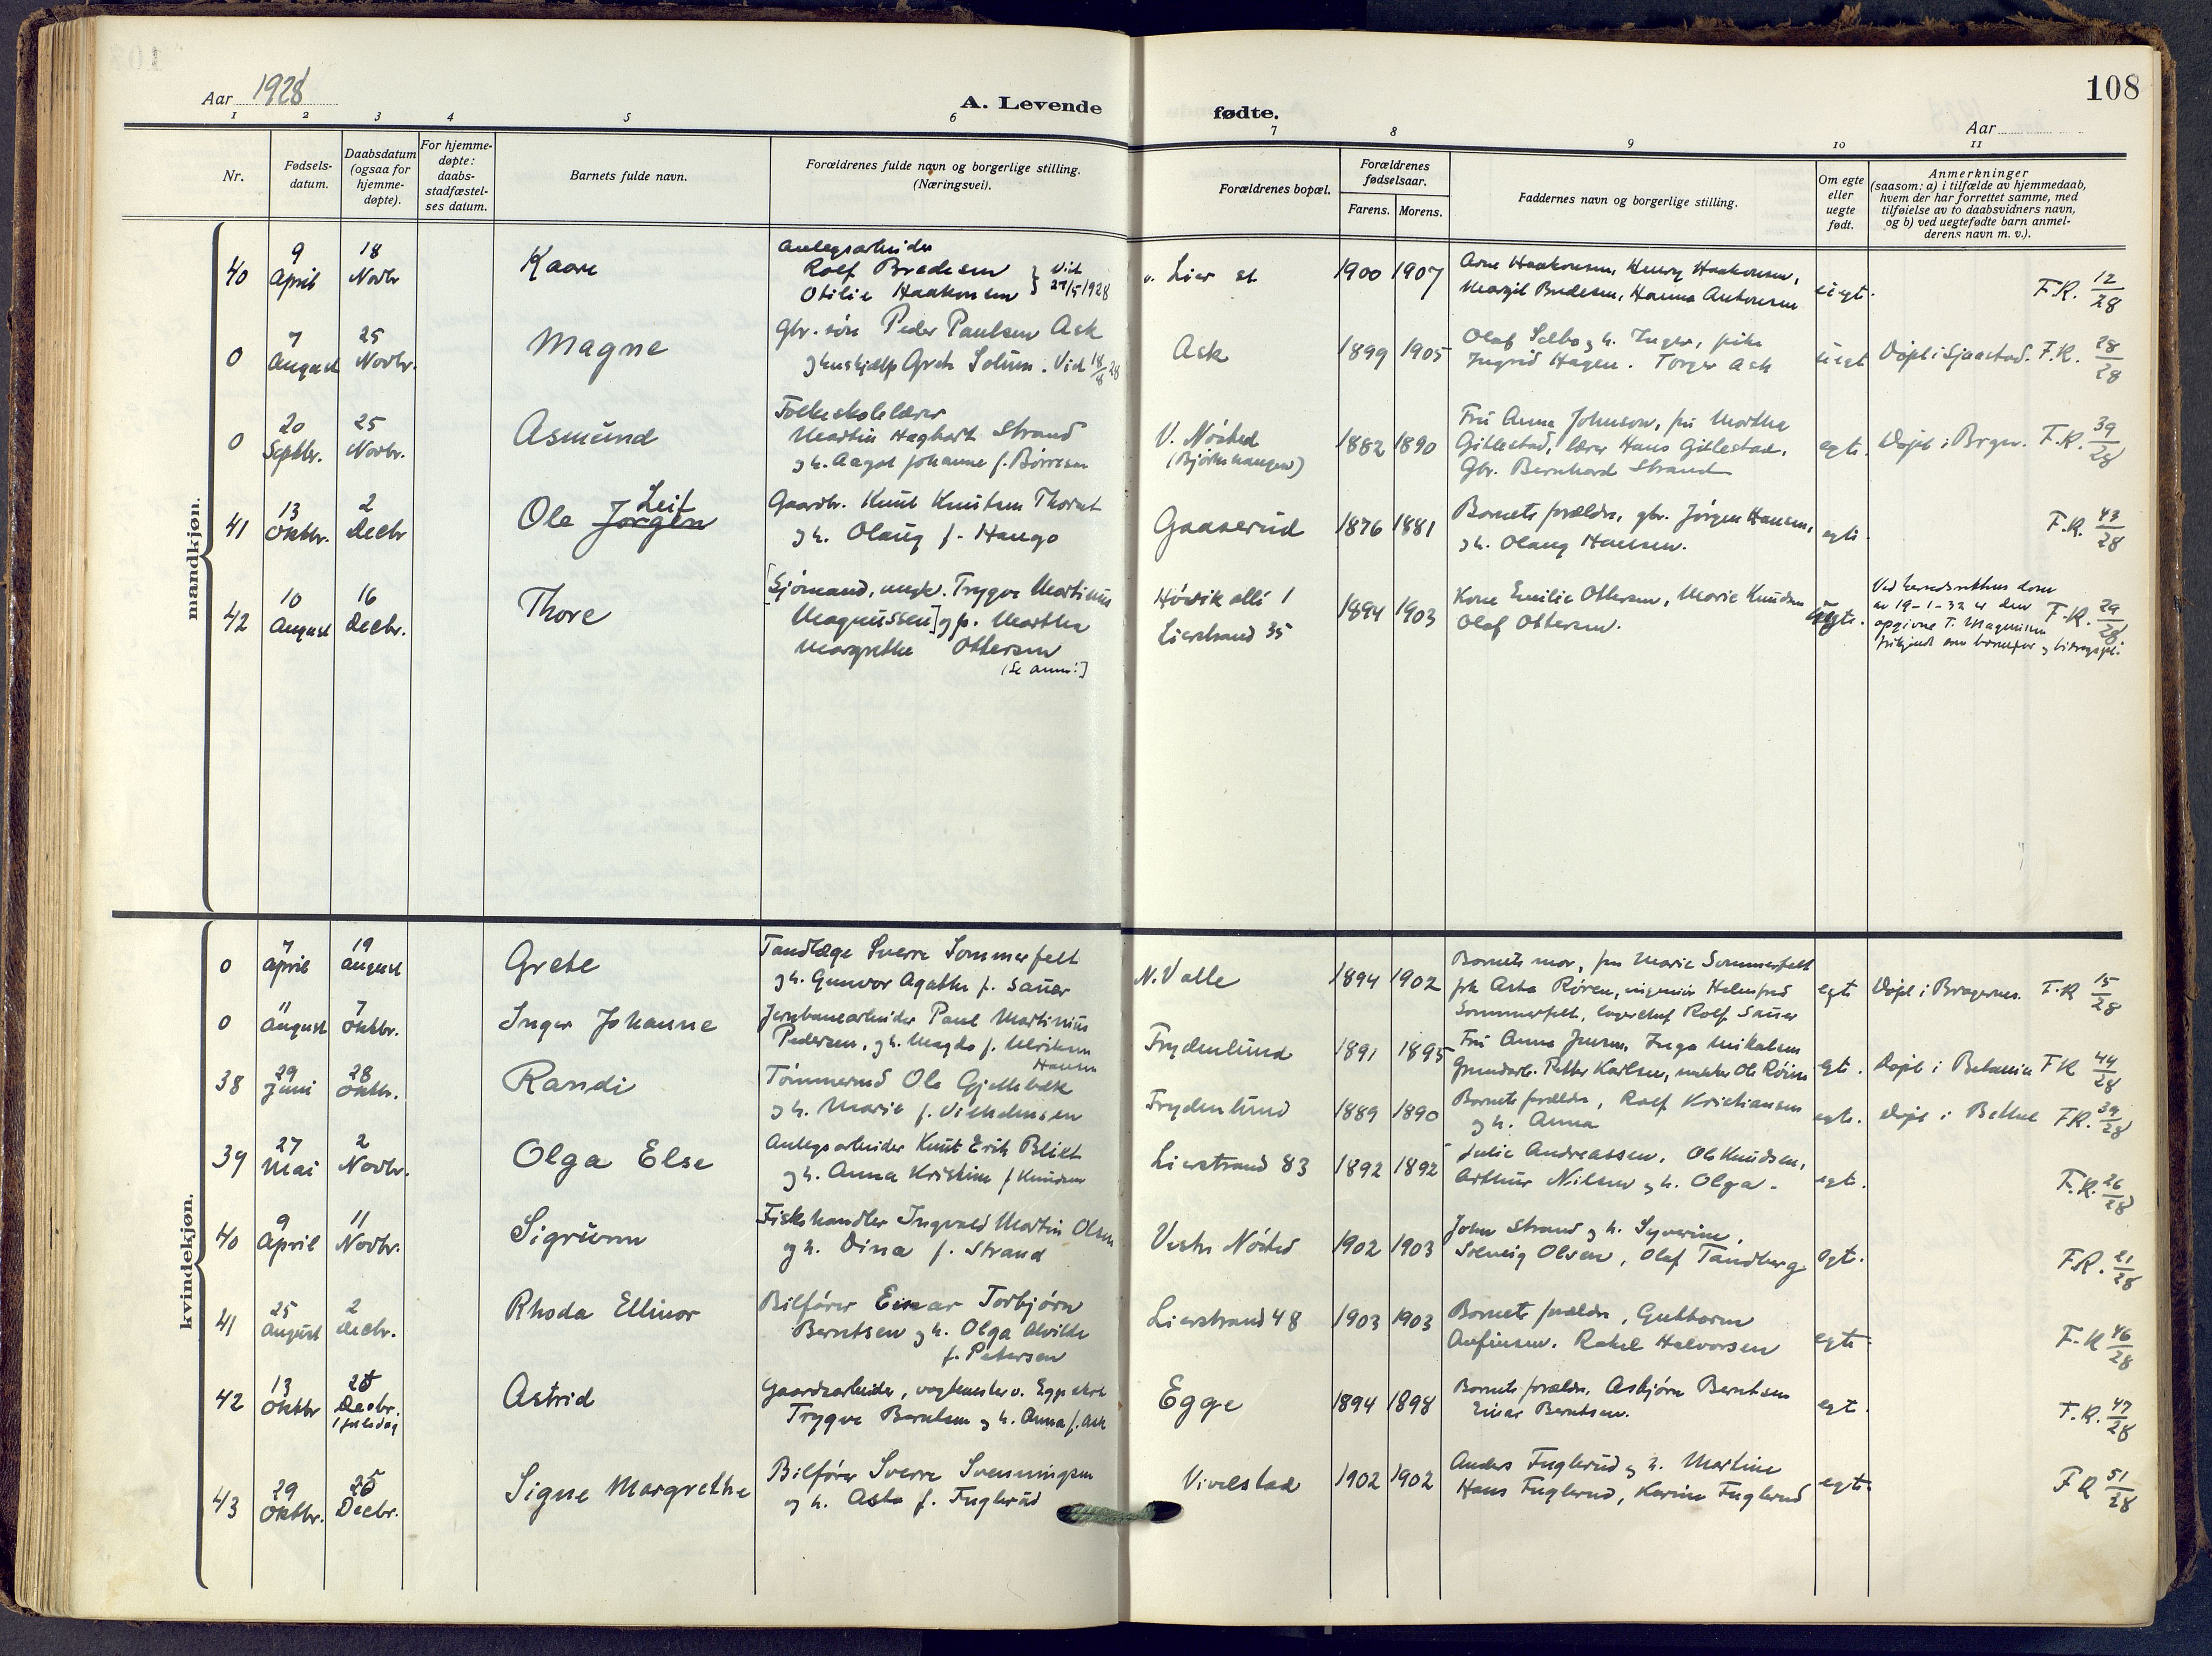 108
Aar 1928
A. Levende
fødte.
Aar
1 2 3 4 5 6 7 8 9 10 11
Nr.
Fødsels-
datum.
Daabsdatum
(ogsaa for
hjemme-
døpte).
For hjemme-
døpte:
daabs-
stadfæstel-
ses datum.
Barnets fulde navn.
Forældrenes fulde navn og borgerlige stilling.
(Næringsvei).
Forældrenes bopæl.
Forældrenes
fødselsaar.
Farens. Morens.
Faddernes navn og borgerlige stilling.
Om egte
eller
uegte
født.
Anmerkninger
(saasom: a) i tilfælde av hjemmedaab,
hvem der har forrettet samme, med
tilføielse av to daabsvidners navn,
og b) ved uegtefødte barn anmel-
derens navn m. v.).
mandkjøn.
40
9
April
18
Novbr
Kaare
Anlegsarbeider
Rolf Bredesen
Otilie Haakonsen
Vid 27/5 1928
v. Lier st
1900 1907
Arne Haakonsen, Henry Haakonsen,
Margit Bredesen, Hanna Antonsen
uegt.
F.R. 12/28
0
7
August
25
Novbr.
Magne
Gbr. søn Peder Paulsen Ask
og hushjælp Grete Solum. Vid 18/8 28
Ask
1899 1905
Olaf Selbo og h. Inger, pike
Ingrid Hagen. Torger Ask
uegt
Døpt i Sjaastad. F.R. 28/28
0
20
Septbr.
25
Novbr.
Asmund
Folkeskolelærer
Martin Hagbart Strand
og h. Aagot Johanne f. Børresen
V. Nøsted
(Bjørkehaugen)
1882 1890
Fru Anna Johnson, fru Martha
Gillestad, lærer Hans Gillestad,
Gbr. Bernhard Strand
egte.
Døpt i Brgn. F.R. 39/28
41
13
Oktbr.
2
Decbr
Ole Jørgen Leif
Gaardbr. Knut Knutsen
og h. Olaug f. Haugo
Gaaserud
1876 1881
Barnets forældre, gbr. Jørgen Hansen,
og h. Olaug Hansen.
egte.
F.R. 43/28
42
10
August
16
Decbr.
Thore
[Sjømand, ungk. Trygve Martinius
Magnussen] og p. Martha
Margrethe Ottersen
(Se anm:]
Høvik allé 1
Lierstrand 35
1894 1903
Kone Emilie Ottersen, Marie Knudsen
Olaf Ottersen.
uegte.
Ved herredsrettens dom
av 19-1-32 er den
opgivne T. Magnussen
frikjendt som barnefar og bidragspl.
F.R. 29/28
kvindekjøn.
0
7
April
19
August
Grete
Tandlæge Sverre Sommerfelt
og h. Gunvor Agathe f. Sauer
N. Valle
1894 1902
Barnets mor, fru Marie Sommerfelt
frk Asta Røren, ingeniør Helmfred
Sommerfelt, lagerchef Rolf Sauer
egte
Døpt i Bragernes. F.R 15/28
0
11
August
7
Oktbr.
Inger Johanne
Jernbanearbeider Paul Martinius
Pedersen, og h. Magda f. Ulriksen
Hansen
Frydenlund
1891 1895
Fru Anna Jensen, Inga Mikalsen
Grundarb. Petter Karlsen, maler Ole Røine
egte.
Døpt i Betania F R 44/28
38
29
Juni
28
Oktbr.
Randi
Tømmermd Ole Gjellebæk
og h. Marie f. Vilhelmsen
Frydenlund
1889 1890
Barnets forældre, Rolf Kristiansen
og h. Anna
egte.
Døpt i Bethel F.R. 39/28
39
27
Mai
2
Novbr.
Olga Else
Anlegsarbeider Knut Erik Blikt
og h. Anna Kristine f Knudsen
Lierstrand 83
1892 1892
Julie Andreassen, Ole Knudsen,
Arthur Nilsen og h. Olga.
egte.
F.R. 26/28
40
9
April
11
Novbr.
Sigrunn
Fiskehandler Ingvald Martin Olsen
og h. Dina f. Strand
Vestre Nøsted
1902 1903
John Strand og h. Syverine,
Solveig Olsen, Olaf Tandberg
egte.
F.R. 21/28
41
25
August
2
Decbr.
Rhoda Ellinor
Bilfører Einar Torbjørn
Berntsen og h. Olga Alvilde
f. Petersen
Lierstrand 48
1903 1903
Barnets forældre, Guttorm
Anfinsen. Rakel Halvorsen
egte.
F.R 46/28
42
13
Oktbr
25
Decbr.
1 juledag
Astrid
Gaardsarbeider, vogtmester v. Egge skole
Trygve Berntsen og h. Anna f. Ask
Egge
1894 1898
Barnets forældre, Asbjørn Berntsen
Einar Berntsen.
egte.
F.R. 47/28
43
29
Oktbr.
26
Decbr.
Signe Margrethe
Bilfører Sverre Svenningsen
og h. Asta f. Fuglerud
Vivelstad
1902 1902
Anders Fuglerud og h. Martine
Hans Fuglerud, Karine Fuglerud
egte.
F R 51/28